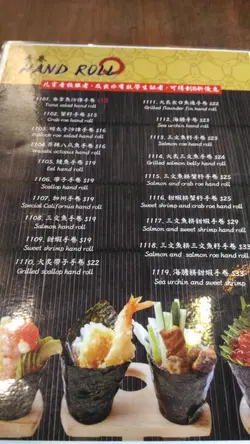 手卷
HAND ROLL
1101. 吞拿魚沙律手卷
Tuna salad hand roll
1102. 蟹籽手卷 $16
Crab roe hand roll
1103. 明太子沙律手卷 $16
Pollock roe salad hand roll
1104. 芥辣八爪魚手卷 $16
Wasabi octopus hand roll
1105. 鰻魚手卷 $19
Eel hand roll
1106. 帶子手卷 $19
Scallop hand roll
1107. 加州手卷 $19
Special California hand roll
1108. 三文魚手卷 $19
Salmon hand roll
1109. 甜蝦手卷 $19
Sweet shrimp hand roll
1110. 火炙帶子手卷 $22
Grilled scallop hand roll
1111. 火炙左口魚邊手卷 $22
Grilled flounder fin hand roll
1112. 海膽手卷 $22
Sea urchin hand roll
1113. 三文魚籽手卷 $22
Salmon roe hand roll
1114. 火炙三文魚腩手卷 $22
Grilled salmon belly hand roll
1115. 三文魚拼蟹籽手卷 $22
Salmon and crab roe hand roll
1116. 甜蝦拼蟹籽手卷 $22
Sweet shrimp and crab roe hand roll
1117. 三文魚拼甜蝦手卷 $29
Salmon and sweet shrimp hand roll
1118. 三文魚拼三文魚籽手卷 $33
Salmon and salmon roe hand roll
1119. 海膽拼甜蝦手卷 $33
Sea urchin and sweet shrimp